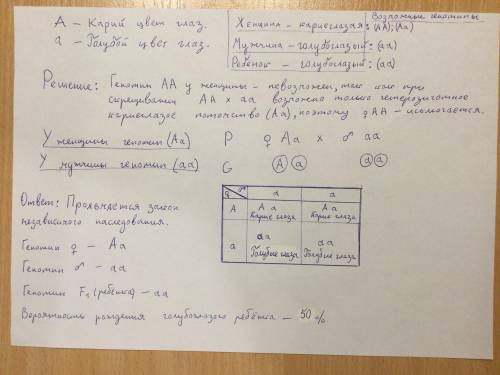 A – Карий цвет глаз.
a – Голубой цвет глаз.
Возможные генотипы
Женщина – кареглазая: (AA); (Aa)
Мужчина – голубоглазый: (aa)
Ребенок – голубоглазый: (aa)
Решение: Генотип AA у женщины – невозможен, так как при
скрещивании AA x aa возможно только гетерозиготное
кареглазое потомство (Aa), поэтому ♀ AA – исключается.
У женщины генотип (Aa)
P ♀ Aa x ♂ aa
У мужчины генотип (aa)
G A a a a
Ответ: Проявляется закон
независимого наследования.
Генотип ♀ – Aa
Генотип ♂ – aa
Генотип F₁ (ребёнка) – aa
Вероятность рождения голубоглазого ребёнка – 50 %
♀ ♂ a a
A Aa Aa
Карие глаза Карие глаза
a aa aa
Голубые глаза Голубые глаза